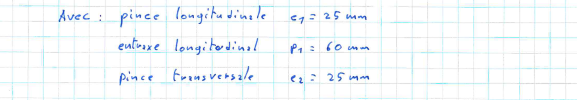 Avec : pince longitudinale e1 = 25 mm
entraxe longitudinal p1 = 60 mm
pince transversale e2 = 25 mm